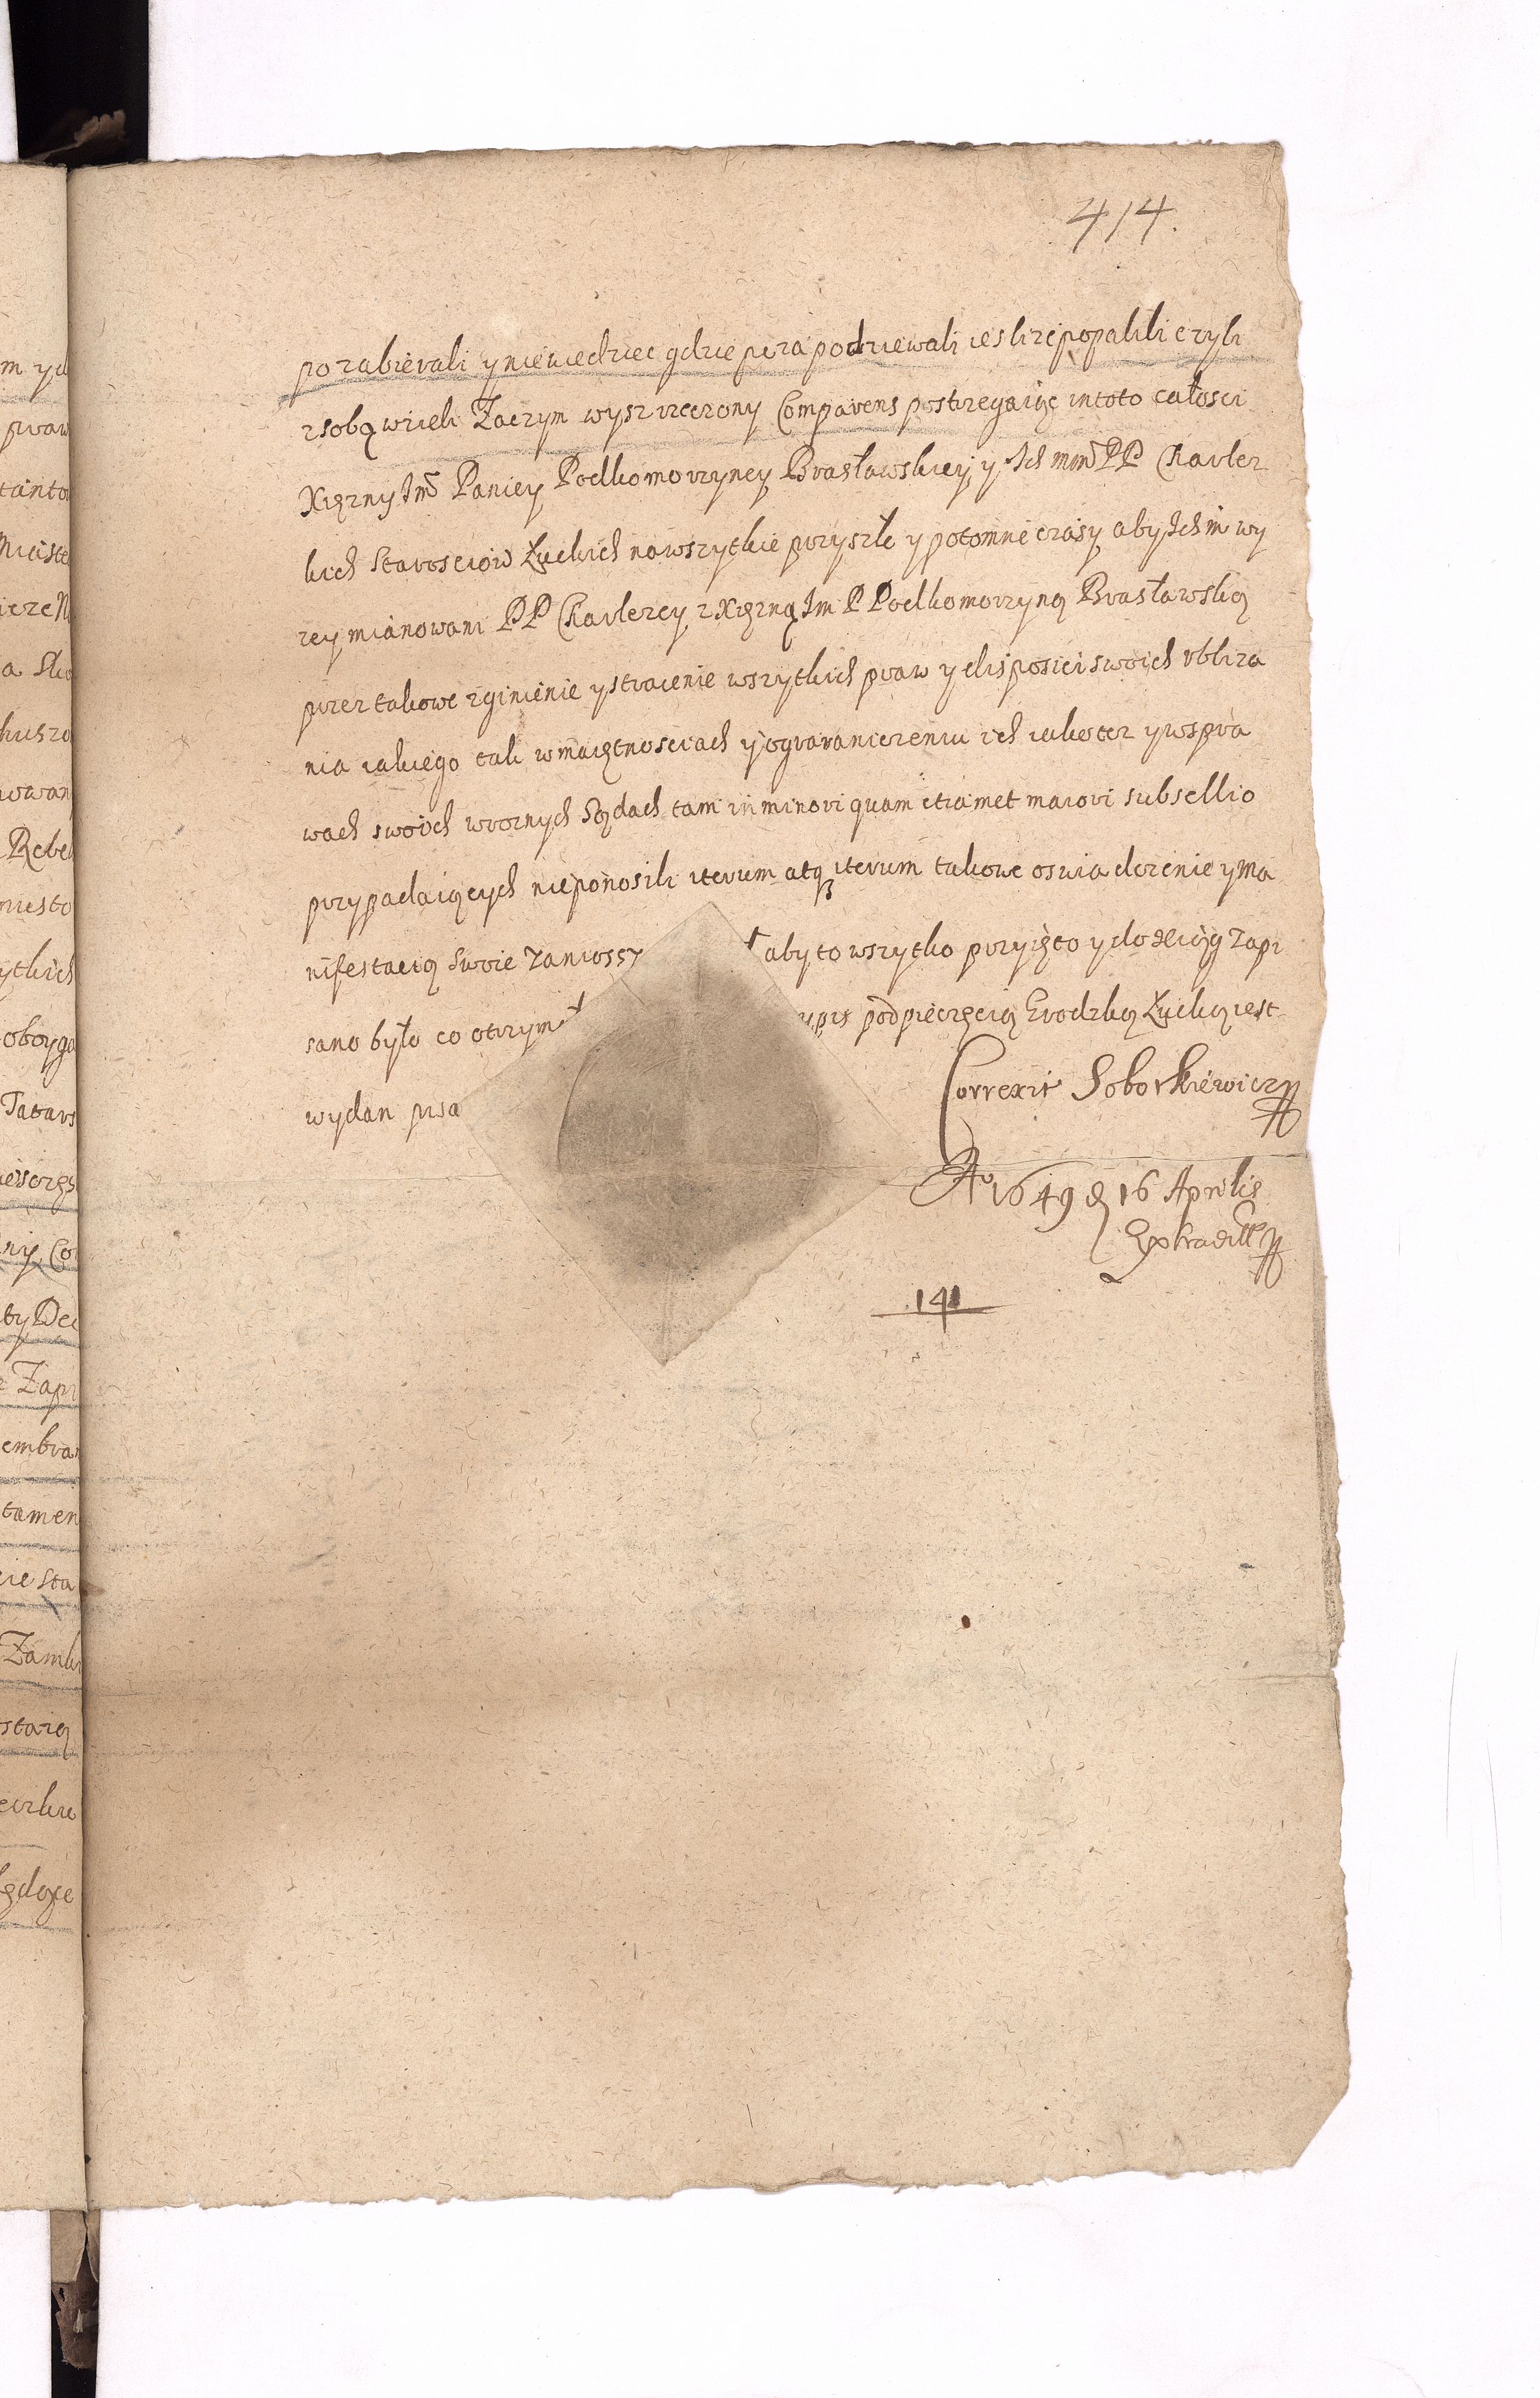 414.
pozabierali y niewiedziec gdzie puza podziewali iesli ze popalili czyli
z sobą wzieli Zaczym wysz rzeczony Comparens postrzegaiąc in toto całosci
Xiężny Jm Paniey Podkomorzyney Brasławskiey y Ich mm PP Charlez
kich Starosciow Łuckich na wszytkie przyszłe y potomne czasy aby Ich m wy
zey mianowani PP Charlezcy z Xiężną Jm P Podkomorzyną Brasławską
przez takowe zginienie y stracenie wszytkich praw y disposiciswoich ubliza
nia iakiego tak w maiętnosciach y ograraniczeniu ich iako tez y w spra
wach swoich w roznych Sądach tam in minori quam etiamet maiori subsellio
przypadaiących nieponosili iterum atq iterum takowe oswiadczenie y ma
nifestacią Swoie zaniossz aby to wszytko przyięto y do xiąg zapi
sano było co otrzymał ypis pod pieczęcią Grodzką Łucką iest
wydan pisa
Correxit Soboskiewicz
Ao 1649 d 16 Aprilis
Extradtt
141
m yd
praw
tanto
Miaste
a Sko
kuszo
owan
Rebel
miesto
ytkich
oboyga
Tatars
ny Co
ty Dec
Zapi
embra
tamen
ie sta
Zamk
staią